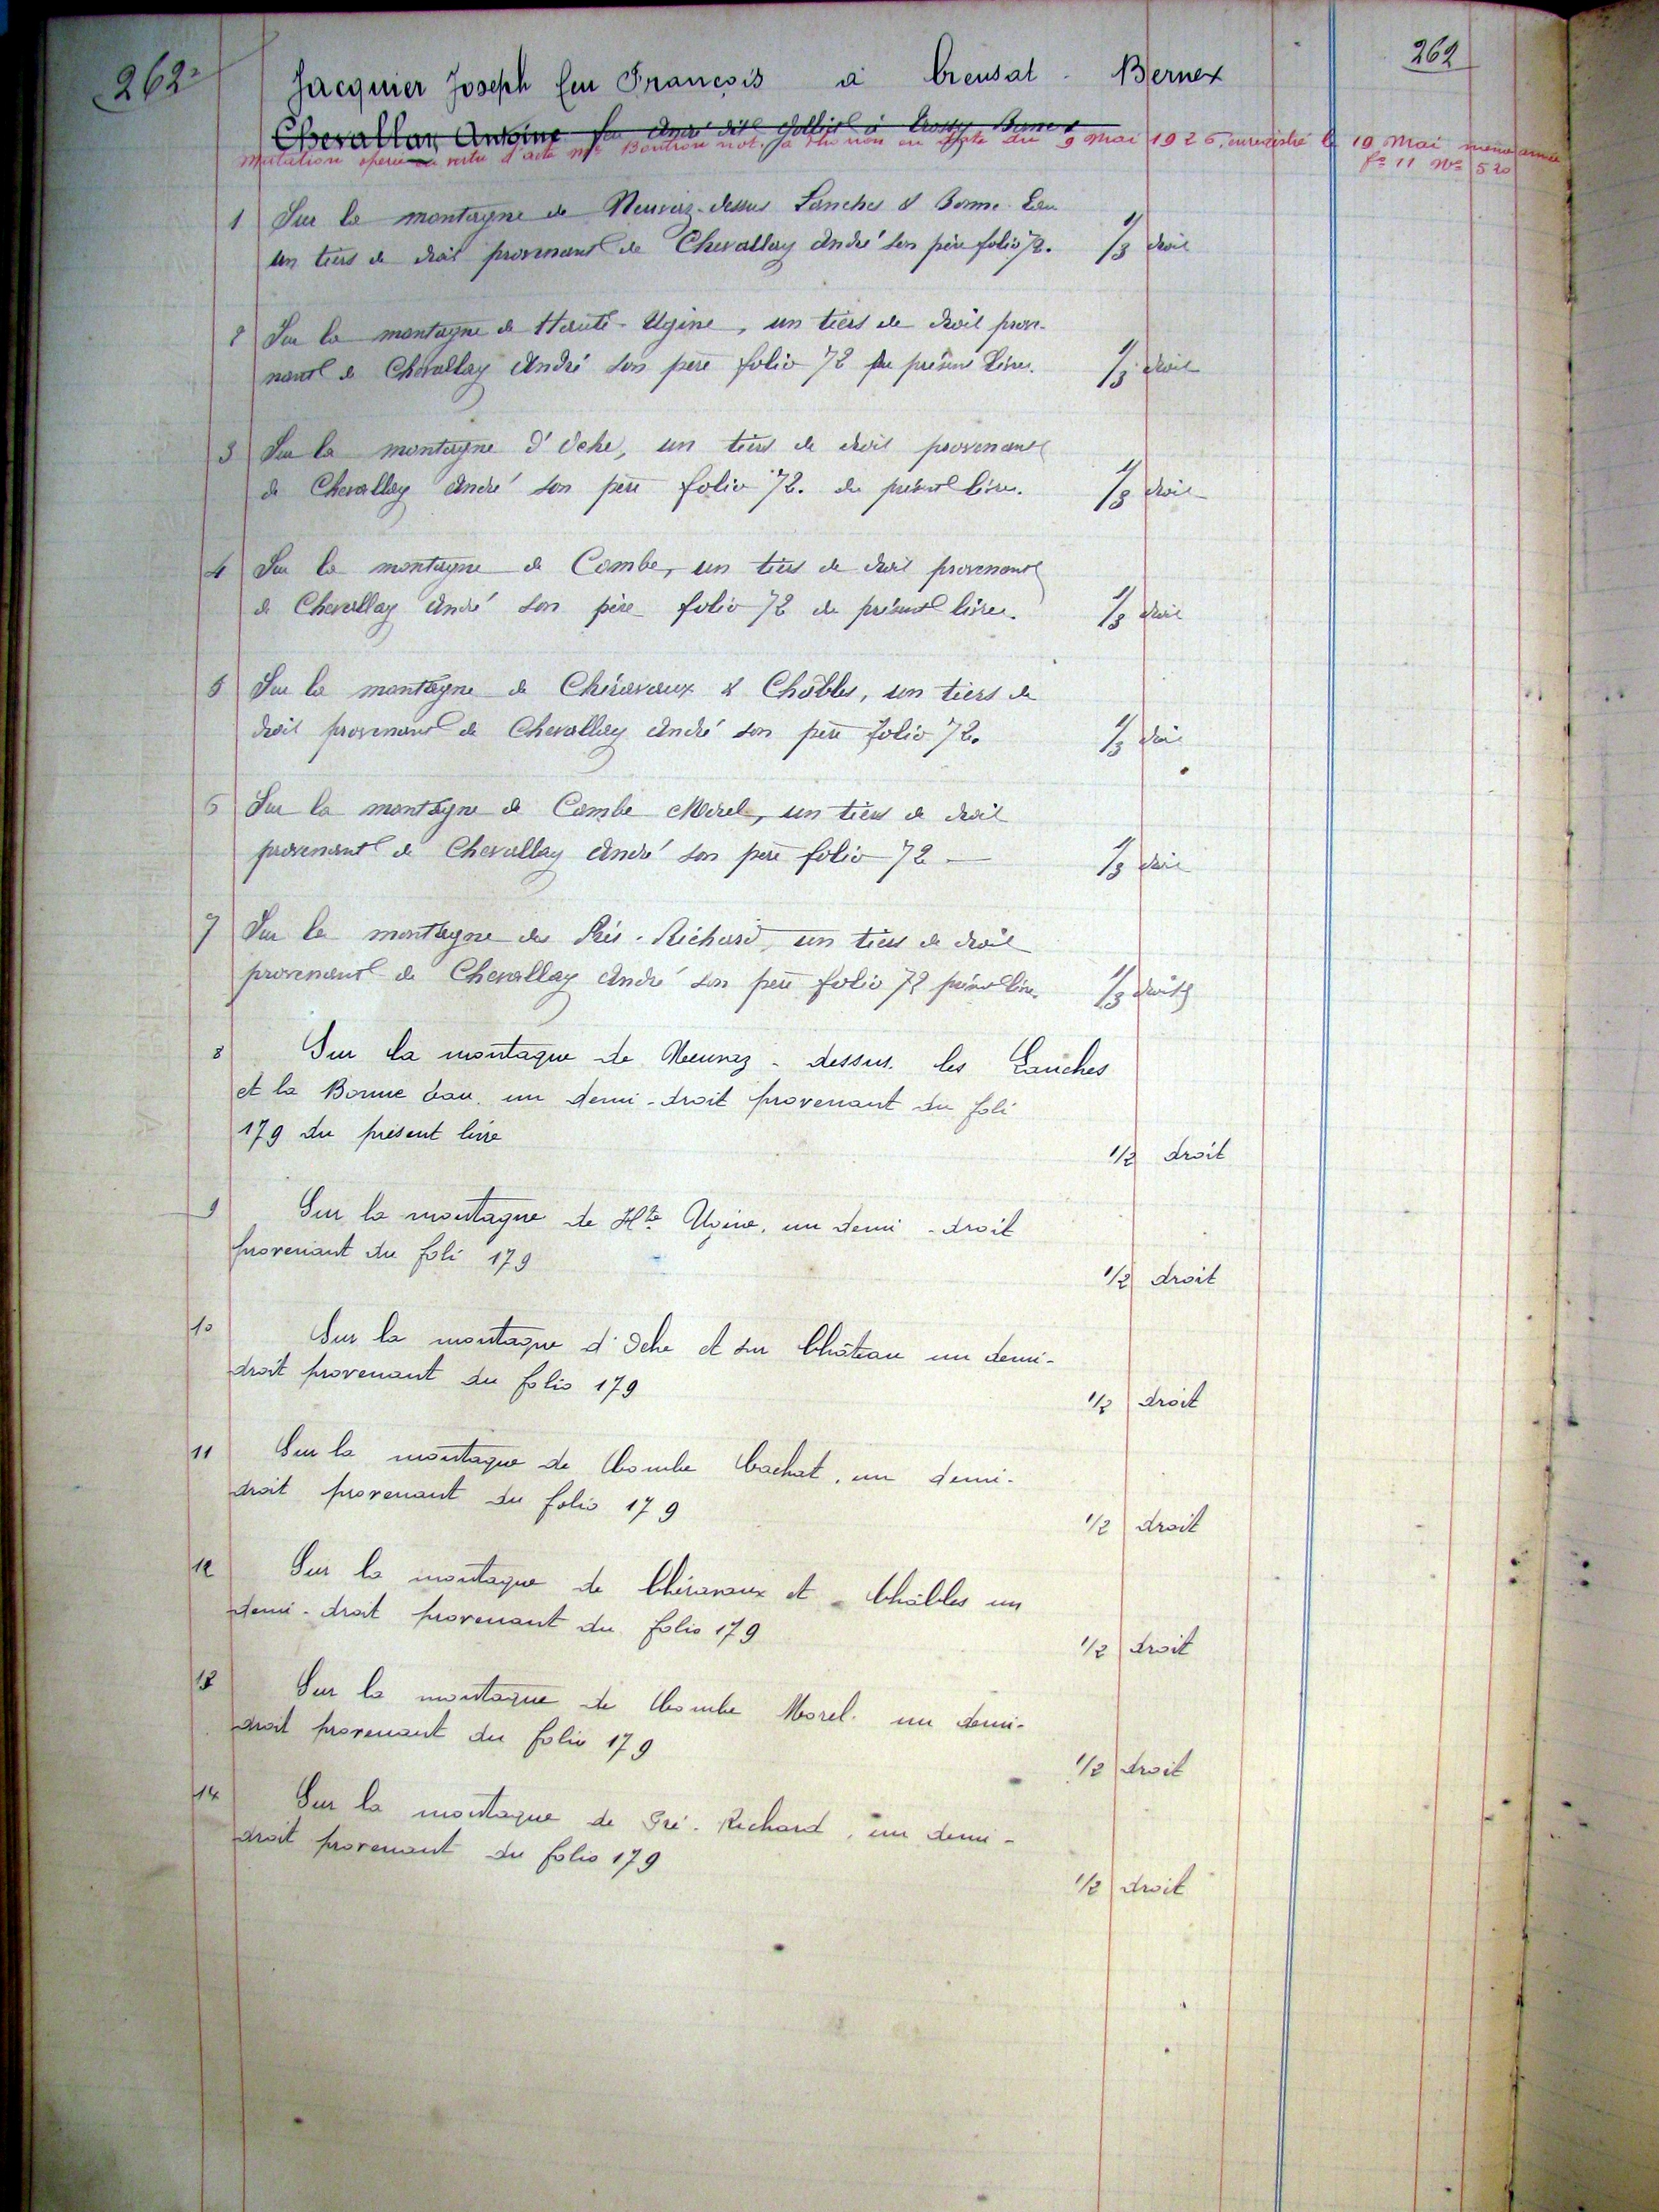 262
262
Jacquier Joseph feu François à Creusat - Bernex
Chevallay Antoine feu André dit Jolliet à Trossy Bernex
Mutation opérée en vertu d'acte Me Boutron not. à Thonon en date du 9 Mai 1926, enregistré le 19 Mai même année
f° 11 N° 520
1 Sur la montagne de Neuvaz-dessus Lanches & Bonne-Eau
un tiers de droit provenant de Chevallay André son père folio 72. 1/3 droit
2 Sur la montagne de Haute-Ugine, un tiers de droit prove-
nant de Chevallay André son père folio 72 du présent livre. 1/3 droit
3 Sur la montagne d'Oche, un tiers de droit provenant
de Chevallay André son père folio 72. du présent livre. 1/3 droit
4 Sur la montagne de Combe, un tiers de droit provenant
de Chevallay André son père folio 72 du présent livre. 1/3 droit
5 Sur la montagne de Chéravaux & Châbles, un tiers de
droit provenant de Chevallay André son père folio 72. 1/3 droit
6 Sur la montagne de Combe Morel, un tiers de droit
provenant de Chevallay André son père folio 72 — 1/3 droit
7 Sur la montagne des Prés-Richard, un tiers de droit
provenant de Chevallay André son père folio 72 présent livre. 1/3 droit
8 Sur la montagne de Neuvaz - dessus. les Lanches
et la Bonne Eau. un demi-droit provenant du foli
179 du présent livre 1/2 droit
9 Sur la montagne de Hte Ugine, un demi-droit
provenant du foli 179 1/2 droit
10 Sur la montagne d'Oche et sur Château un demi-
droit provenant du folio 179 1/2 droit
11 Sur la montagne de Combe Cachat, un demi-
droit provenant du folio 179 1/2 droit
12 Sur la montagne de Chéravaux et Châbles un
demi-droit provenant du folio 179 1/2 droit
13 Sur la montagne de Combe Morel. un demi-
droit provenant du folio 179 1/2 droit
14 Sur la montagne de Pré-Richard, un demi-
droit provenant du folio 179 1/2 droit